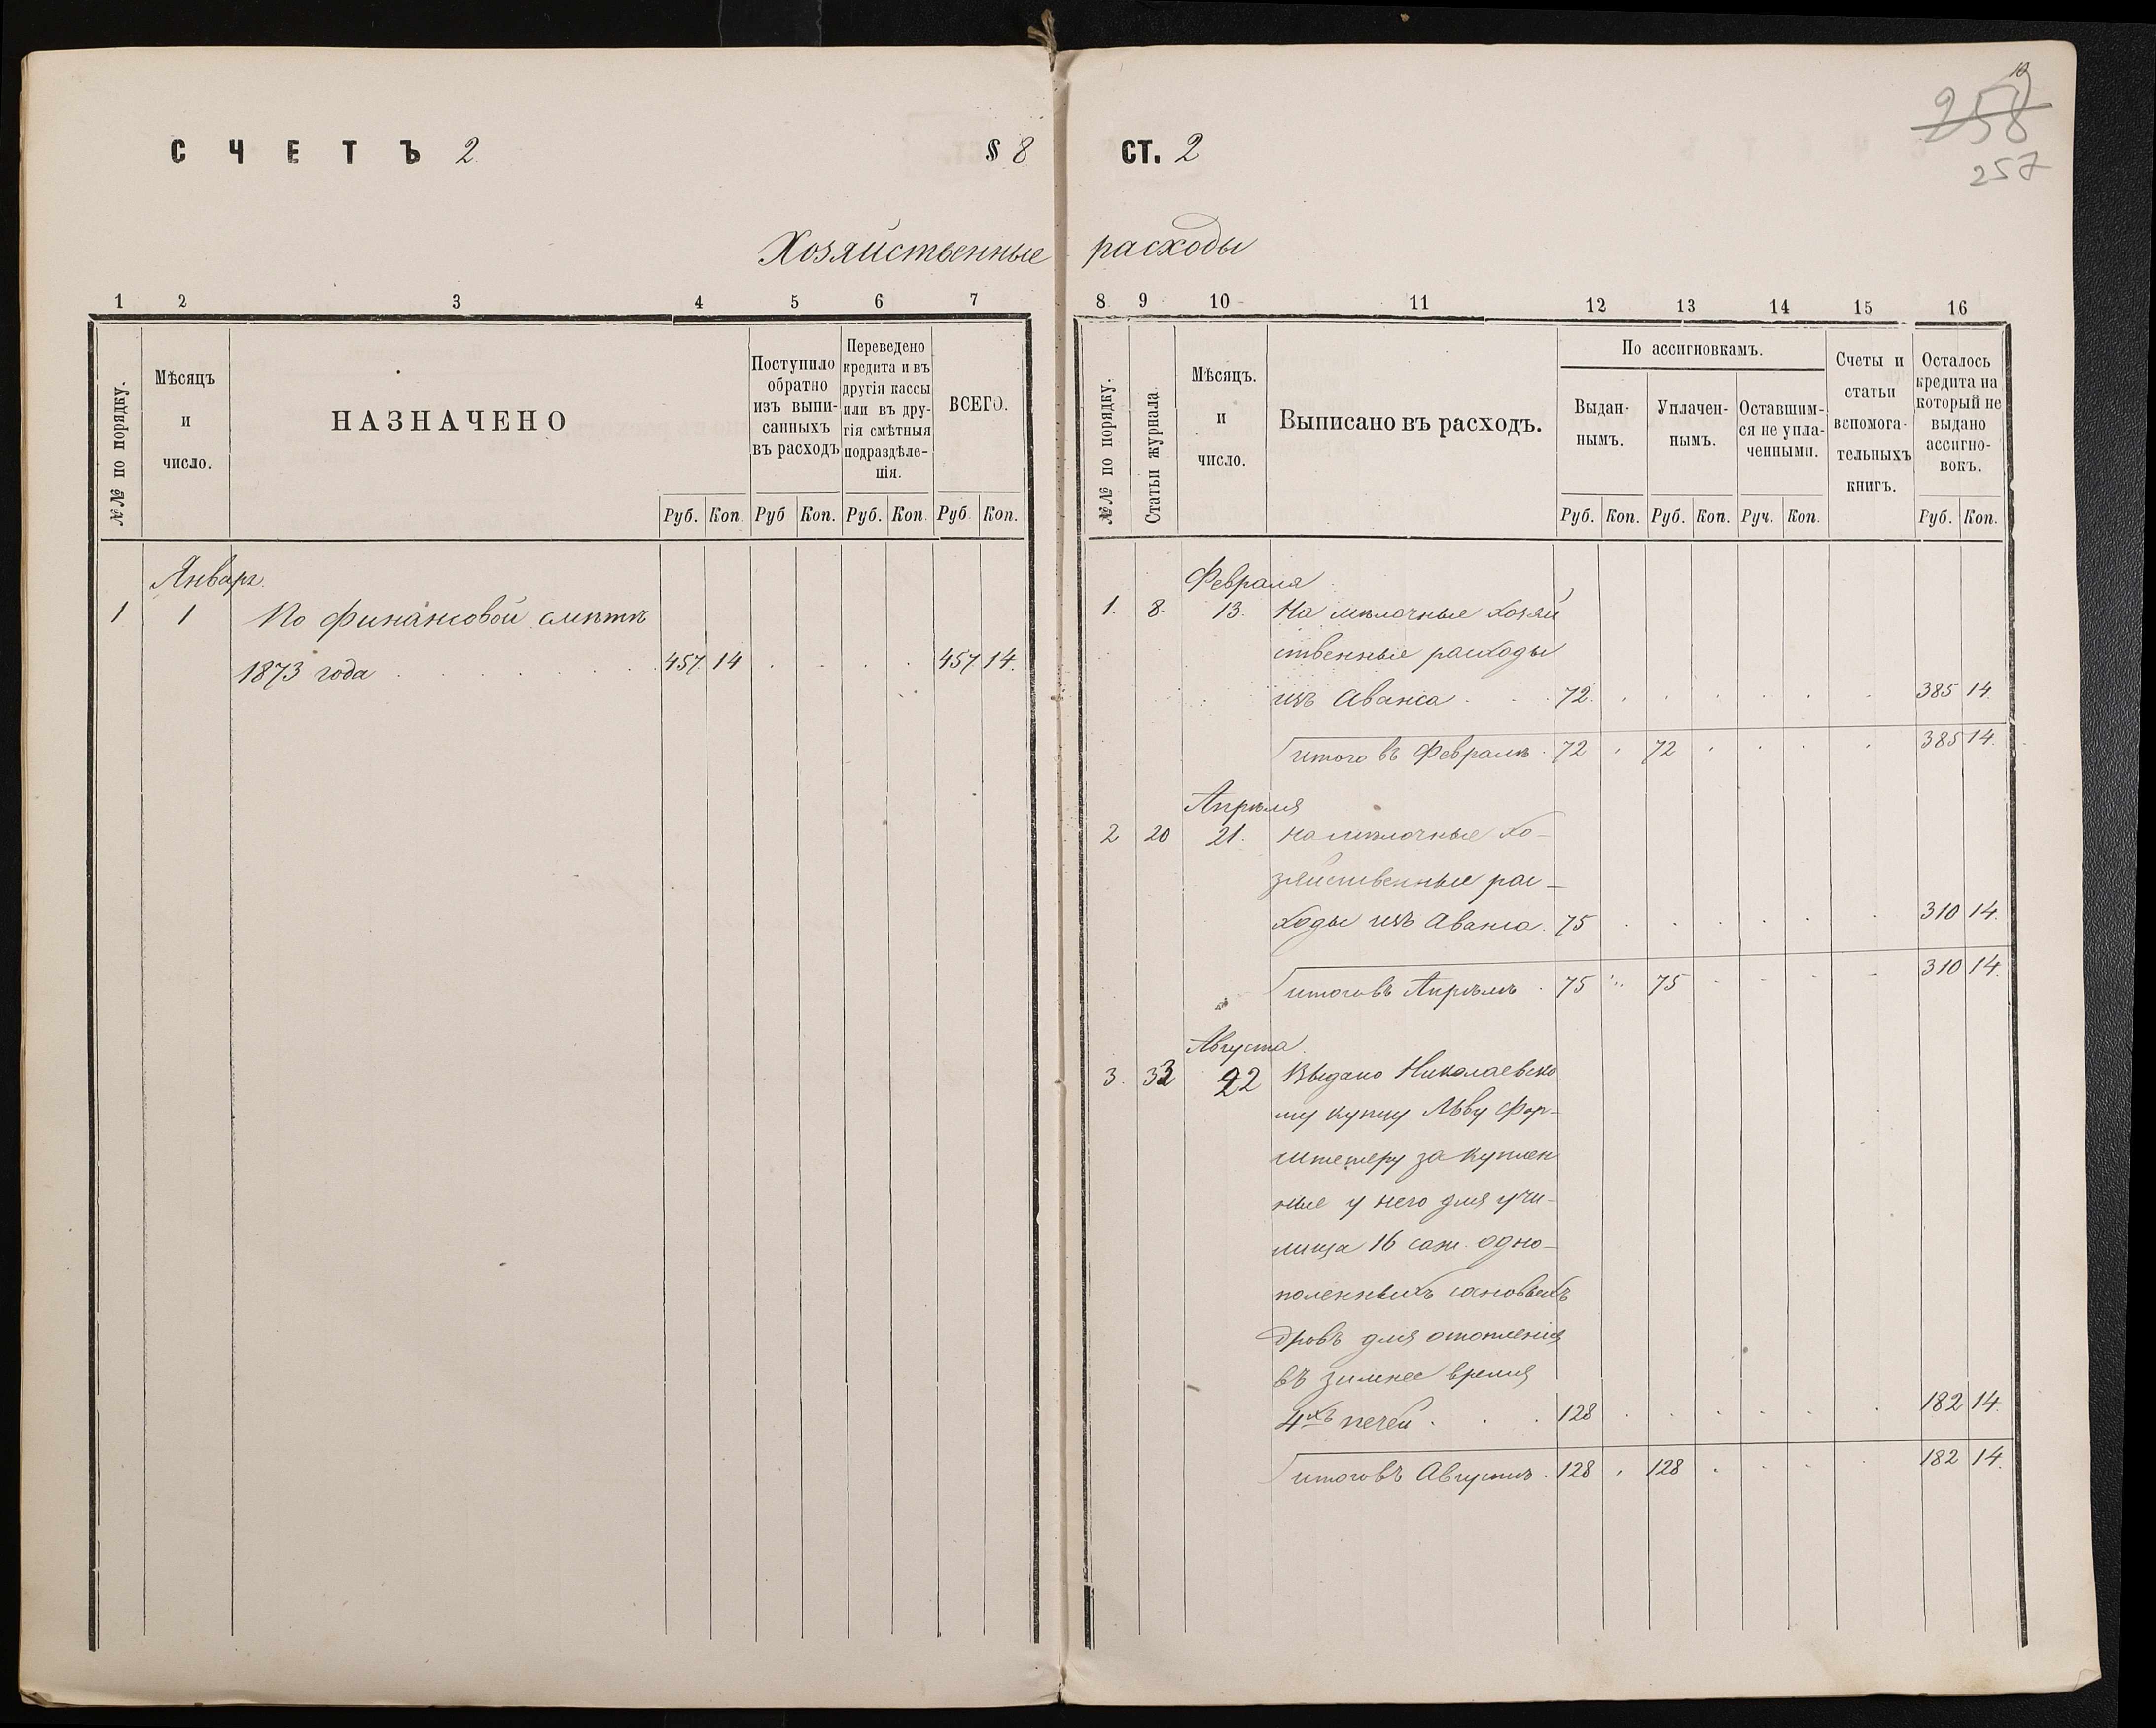 10
258
257
СЧЕТЪ 2 § 8
СТ. 2
Хозяйственные расходы
1 2 3 4 5 6 7
№№ по порядку.
Мѣсяцъ
и
число.
НАЗНАЧЕНО
Поступило
обратно
изъ выпи-
санныхъ
въ расходъ
Переведено
кредита и въ
другія кассы
или въ дру-
гія смѣтныя
подраздѣле-
нія.
ВСЕГО.
Руб. Коп. Руб Коп. Руб. Коп. Руб. Коп.
Январь.
1 1 По финансовой смѣтѣ
1873 года 457 14 457 14.
8 9 10 11 12 13 14 15 16
№№ по порядку.
Статьи журнала
Мѣсяцъ.
и
число.
Выписано въ расходъ.
По ассигновкамъ.
Выдан-
нымъ.
Уплачен-
нымъ.
Оставшим-
ся не упла-
ченными.
Счеты и
статьи
вспомога-
тельныхъ
книгъ.
Осталось
кредита на
который не
выдано
ассигно-
вокъ.
Руб. Коп. Руб. Коп. Руч. Коп. Руб. Коп.
Февраля
1. 8. 13. На мѣлочные хозяй
ственные расходы
изъ Аванса 72. 385 14
итого въ Февралѣ 72 72 385 14.
Апрѣля
2 20 21. на мѣлочные хо-
зяйственные рас-
ходы изъ Аванса. 75 310 14.
итого въ Апрѣлѣ 75 75 310 14.
Августа
3. 33 22 Выдано Николаевско
му купцу Льву
за куплен
ные у него для учи-
лища 16 саж. одно-
поленныхъ сосновыхъ
дровъ для отопленія
въ зимнее время
4хъ печей 128 182 14.
итого въ Августѣ. 128 128 182 14.